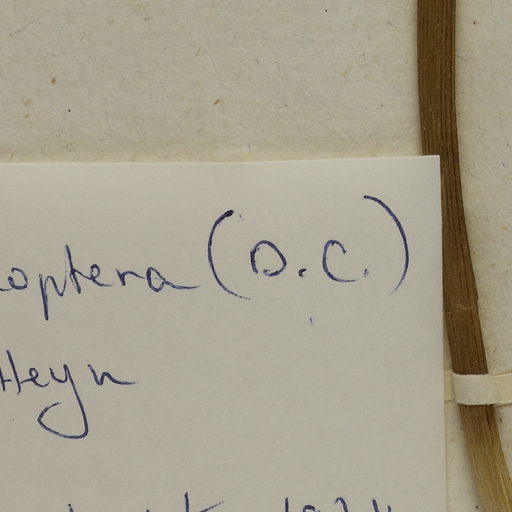 optera (D.C.)
Heyn